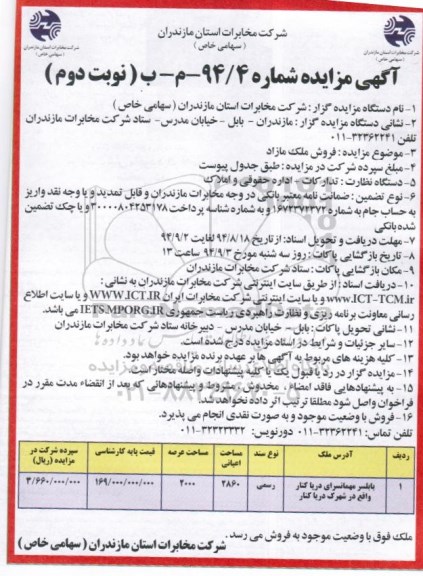 شرکت مخابرات استان مازندران
( سهامی خاص )
شرکت مخابرات استان مازندران
(سهامی خاص)
شرکت مخابرات استان مازندران
(سهامی خاص)
آگهی مزایده شماره ۹۴/۴-م- ب ( نوبت دوم )
۱- نام دستگاه مزایده گزار : شرکت مخابرات استان مازندران ( سهامی خاص )
۲- نشانی دستگاه مزایده گزار : مازندران - بابل - خیابان مدرس- ستاد شرکت مخابرات مازندران
تلفن ۳۲۳۶۲۲۴۱-۰۱۱
۳- موضوع مزایده : فروش ملک مازاد
۴- مبلغ سپرده شرکت در مزایده : طبق جدول پیوست
۵- دستگاه نظارت : تدارکات - اداره حقوقی و املاک
۶- نوع تضمین : ضمانت نامه معتبر بانکی در وجه مخابرات مازندران و قابل تمدید و یا وجه نقد واریز
به حساب جام به شماره ۱۶۷۲۳۷۲۳۷۲ و به شماره شناسه پرداخت ۳۰۰۰۰۸۰۴۲۵۳۱۷۸ و یا چک تضمین
شده بانکی
۷- مهلت دریافت و تحویل اسناد: از تاریخ ۹۴/۸/۱۸ لغایت ۹۴/۹/۲
۸- تاریخ بازگشایی پاکات : روز سه شنبه مورخ ۹۴/۹/۳ ساعت ۱۳
۹- مکان بازگشایی پاکات : ستاد شرکت مخابرات مازندران
۱۰- دریافت اسناد : از طریق سایت اینترنتی شرکت مخابرات مازندران به نشانی :
www.ICT-TCM.ir و یا سایت اینترنتی شرکت مخابرات ایران WWW.ICT.IR و یا سایت اطلاع
رسانی معاونت برنامه ریزی و نظارت راهبردی ریاست جمهوری IETS.MPORG.IR می باشد.
۱۱- نشانی تحویل پاکات : بابل - خیابان مدرس - دبیرخانه ستاد شرکت مخابرات مازندران
۱۲- سایر جزئیات و شرایط در اسناد مزایده درج شده است.
۱۳- کلیه هزینه های مربوط به آگهی ها بر عهده برنده مزایده خواهد بود.
۱۴- مزایده گزار در رد یا قبول یک یا کلیه پیشنهادات واصله مختار است.
۱۵- به پیشنهادهایی فاقد امضاء ، مخدوش ، مشروط و پیشنهاداتی که بعد از انقضاء مدت مقرر در
فراخوان واصل شود مطلقا ترتیب اثر داده نخواهد شد.
۱۶- فروش با وضعیت موجود و به صورت نقدی انجام می پذیرد.
تلفن تماس: ۳۲۳۶۲۲۴۱-۰۱۱ دورنویس: ۳۲۳۲۳۳۳۲-۰۱۱
ردیف آدرس ملک نوع سند مساحت اعیانی مساحت عرصه قیمت پایه کارشناسی سپرده شرکت در مزایده (ریال)
۱ بابلسر مهمانسرای دریا کنار واقع در شهرک دریا کنار رسمی ۲۸۶۰ ۲۰۰۰ ۱۶۹/۰۰۰/۰۰۰/۰۰۰ ۳/۶۶۰/۰۰۰/۰۰۰
ملک فوق با وضعیت موجود به فروش می رسد .
شرکت مخابرات استان مازندران ( سهامی خاص )